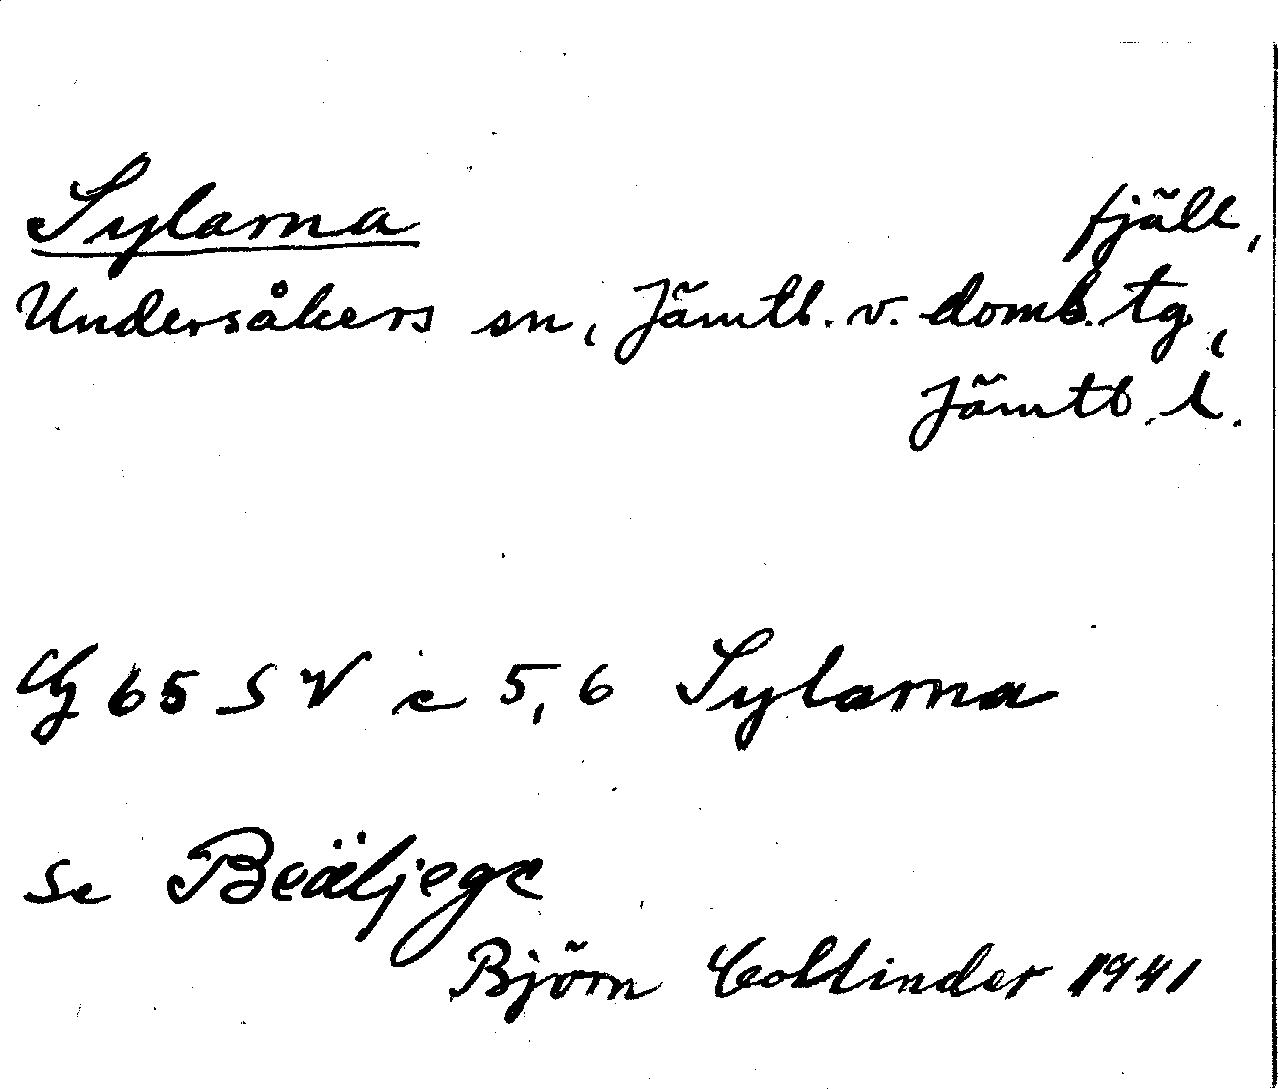 Sylarna fjäll,
Undersåkers sn, Jämtl. v. doms. tg,
Jämtl. l.
Gg 65 SV c 5,6 Sylarna
se Beäljege
Björn Collinder 1941